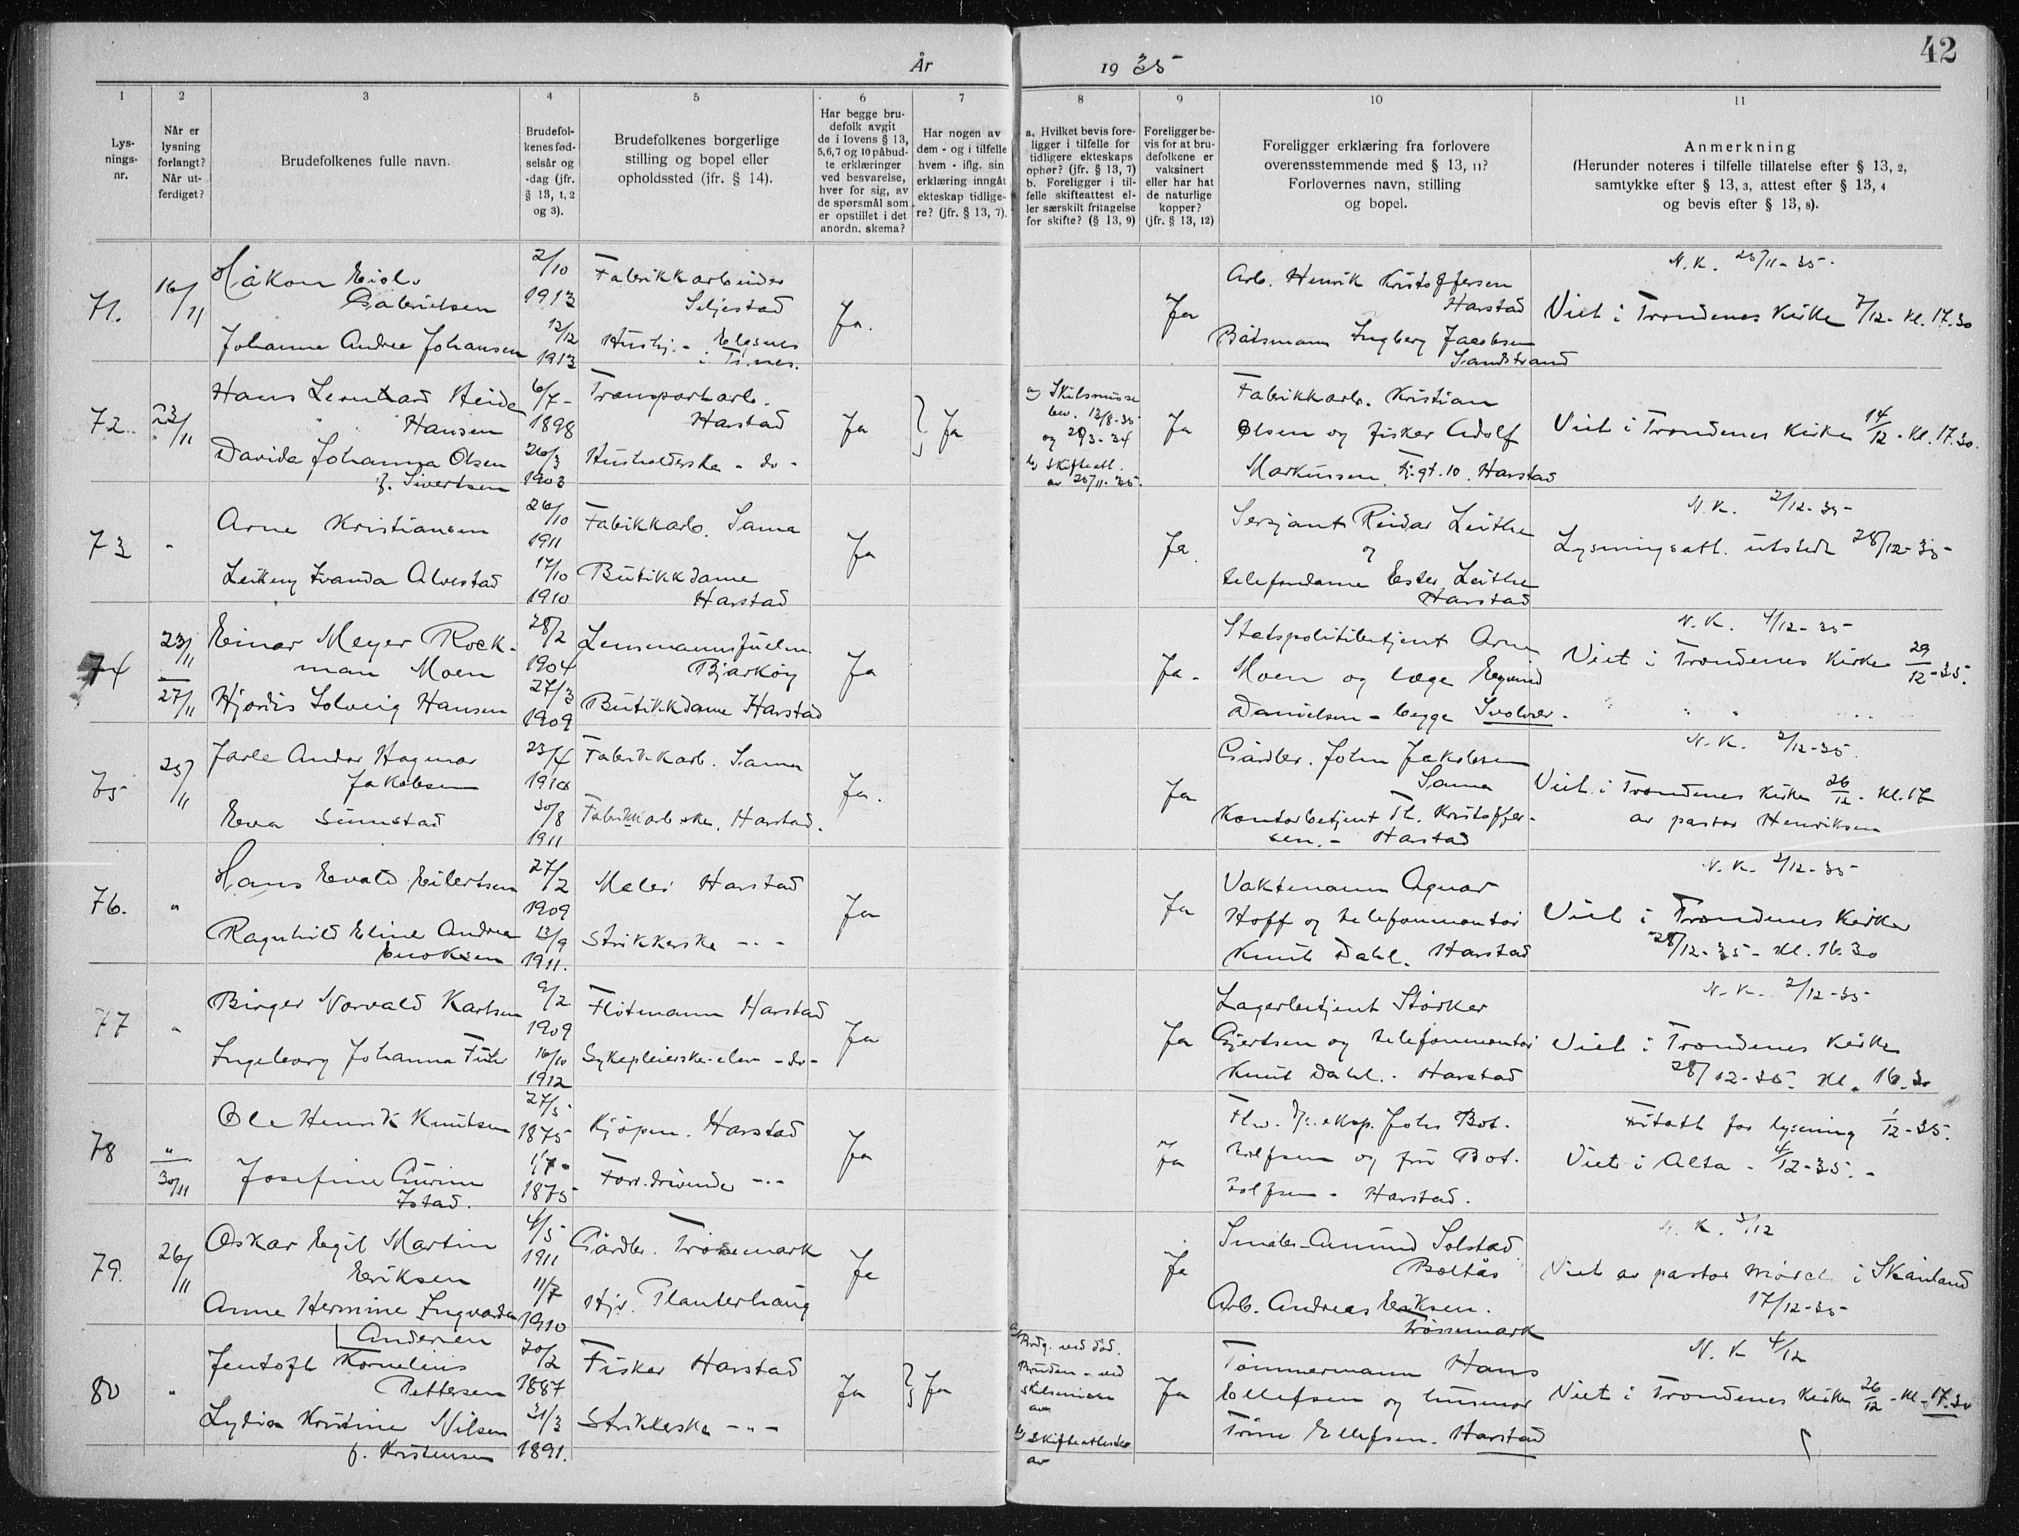 År 1935
42
1
2
3
4
5
6
7
8
9
10
11
Lys-
nings-
nr.
Når er
lysning
forlangt?
Når ut-
ferdiget?
Brudefolkenes fulle navn.
Brudefol-
kenes fød-
selsår og
-dag (jfr.
§ 13, 1, 2
og 3).
Brudefolkenes borgerlige
stilling og bopel eller
opholdssted (jfr. § 14).
Har begge bru-
defolk avgit
de i lovens § 13,
5,6,7 og 10 påbud-
te erklæringer
ved besvarelse,
hver for sig, av
de spørsmål som
er opstillet i det
anordn. skema?
Har nogen av
dem - og i tilfelle
hvem - iflg. sin
erklæring inngåt
ekteskap tidlige-
re? (jfr. § 13, 7).
a. Hvilket bevis fore-
ligger i tilfelle for
tidligere ekteskaps
ophør? (jfr. § 13, 7)
b. Foreligger i til-
felle skifteattest el-
ler særskilt fritagelse
for skifte? (§ 13, 9)
Foreligger be-
vis for at bru-
defolkene er
vaksinert
eller har hat
de naturlige
kopper?
(jfr. § 13, 12)
Foreligger erklæring fra forlovere
overensstemmende med § 13, 11?
Forlovernes navn, stilling
og bopel.
Anmerkning
(Herunder noteres i tilfelle tillatelse efter § 13, 2,
samtykke efter § 13, 3, attest efter § 13, 4
og bevis efter § 13, 8).
71.
16/11
Håkon
Gabrielsen
Johanna Andrea Johansen
2/10
1913
12/12
1913
Fabrikkarbeider
Seljestad
Hushj. - Elgsnes
i Tr.nes.
Ja.
Ja
Arb. Henrik Kristoffersen
Harstad
Båtsmann Ingberg Jacobsen
Sandstrand
N.K. 25/11-35.
Viet i Trondenes Kirke 7/12- Kl. 17.30
72.
23/11
Hans Leonhard Heide
Hansen
Davida Johanna Olsen
f. Sivertsen
6/7-
1898
26/3
1903
Transportarb.
Harstad
Husholderske - do -
Ja
Ja
a) Skilsmisse
bev. 12/8-35
og 3-34
b) Skifteatt.
av 25/11-35.
Ja
Fabrikkarb. Kristian
Olsen og fisker Adolf
Markussen. Fj.gt. 10. Harstad
Viet i Trondenes Kirke 14/12 - Kl. 17.30.
73
"
Arne Kristiansen
Alvestad
26/10
1911
17/10
1910
Fabrikkarb. Sama
Butikkdame
Harstad
Ja
Ja.
Sersjant Reidar Leithe
og
telefondame Ester Leithe
Harstad
N.K. 2/12-35-
Lysningsatt. utstedt 28/12-35-
74
23/11
27/11
Einar Meyer Rock-
man Moen
Hjørdis Solveig Hansen
28/2
1904
27/3
1909
Lensmannsfullm.
Bjarkøy
Butikkdame Harstad
Ja
Ja.
Statspolitibetjent Arne
Moen og læge
Danielsen - begge Svolvær.
N.K. 4/12-35
Viet i Trondenes Kirke 29/12-35.
75
25/11
Jarle Andor Hagmar
Jakobsen
Eva Sunnstad
23/4
1910
30/8
1911
Fabrikkarb. Sama
Fabrikkarb.ske. Harstad.
Ja.
Ja
Gårdbr. John Jakobsen
Sama
Kontorbetjent Th. Kristoffer-
sen. - Harstad
N.K. 2/12-35.
Viet i Trondenes Kirke 26/12 - Kl. 17
av pastor Henriksen
76.
"
Hans Evald Eilertsen
Ragnhild Eline Andrea
Enoksen
27/2
1909
13/9
1911.
Maler Harstad
Strikkerske - " -
Ja
Ja
Vaktmann Agnar
Hoff og telefonmontør
Knut Dahl. Harstad
N.K. 2/12-35
Viet i Trondenes Kirke
28/12-35- Kl. 16.30
77
"
Birger Norvald Karlsen
Ingeborg Johanna
9/2
1909
16/10
1912
Fløtmann Harstad
Sykepleierske-elev - do -
Ja
Ja
Lagerbetjent Størker
Gjertsen og telefonmontør
Knut Dahl. - Harstad
N.K. 2/12-35
Viet i Trondenes Kirke
28/12-35. Kl. 16.30
78
"
30/11
Ole Henrik Knutsen
Josefine Gurine
Istad.
27/5
1875
1/7-
1875
Kjøpm. Harstad
Forr.drivende - " -
Ja
Ja
eksp. Johs Bot-
tolfsen og fru Bot-
tolfsen - Harstad.
Fritatt for lysning 1/12-35.
Viet i Alta - 4/12-35. -
79.
26/11
Oskar Egil Martin
Eriksen
Anne Hermine Ingvarda
Andersen
4/5
1911
11/7
1910
Gårdbr. Trøssemark
Hjv. Planterhaug
Ja
Ja
Småbr. Amund Solstad
Boltås
Arb. Andreas Eriksen.
Trøssemark
N.K. 3/12
Viet av pastor Mörch i Skånland
17/12-35
80
"
Jentoft Kornelius
Pettersen
Lydia Kristine Nilsen
f. Kristensen
20/2
1887
31/3
1891.
Fisker Harstad
Strikkerske - " -
Ja
Ja
a) Brdg. ved død.
Bruden - ved
skilsmisse
av
b) Skifteattester
av
Ja
Tømmermann Hans
Ellefsen og husmor
Trine Ellefsen. Harstad
N.K. 4/12
Viet i Trondenes Kirke 26/12 - Kl. 17.30